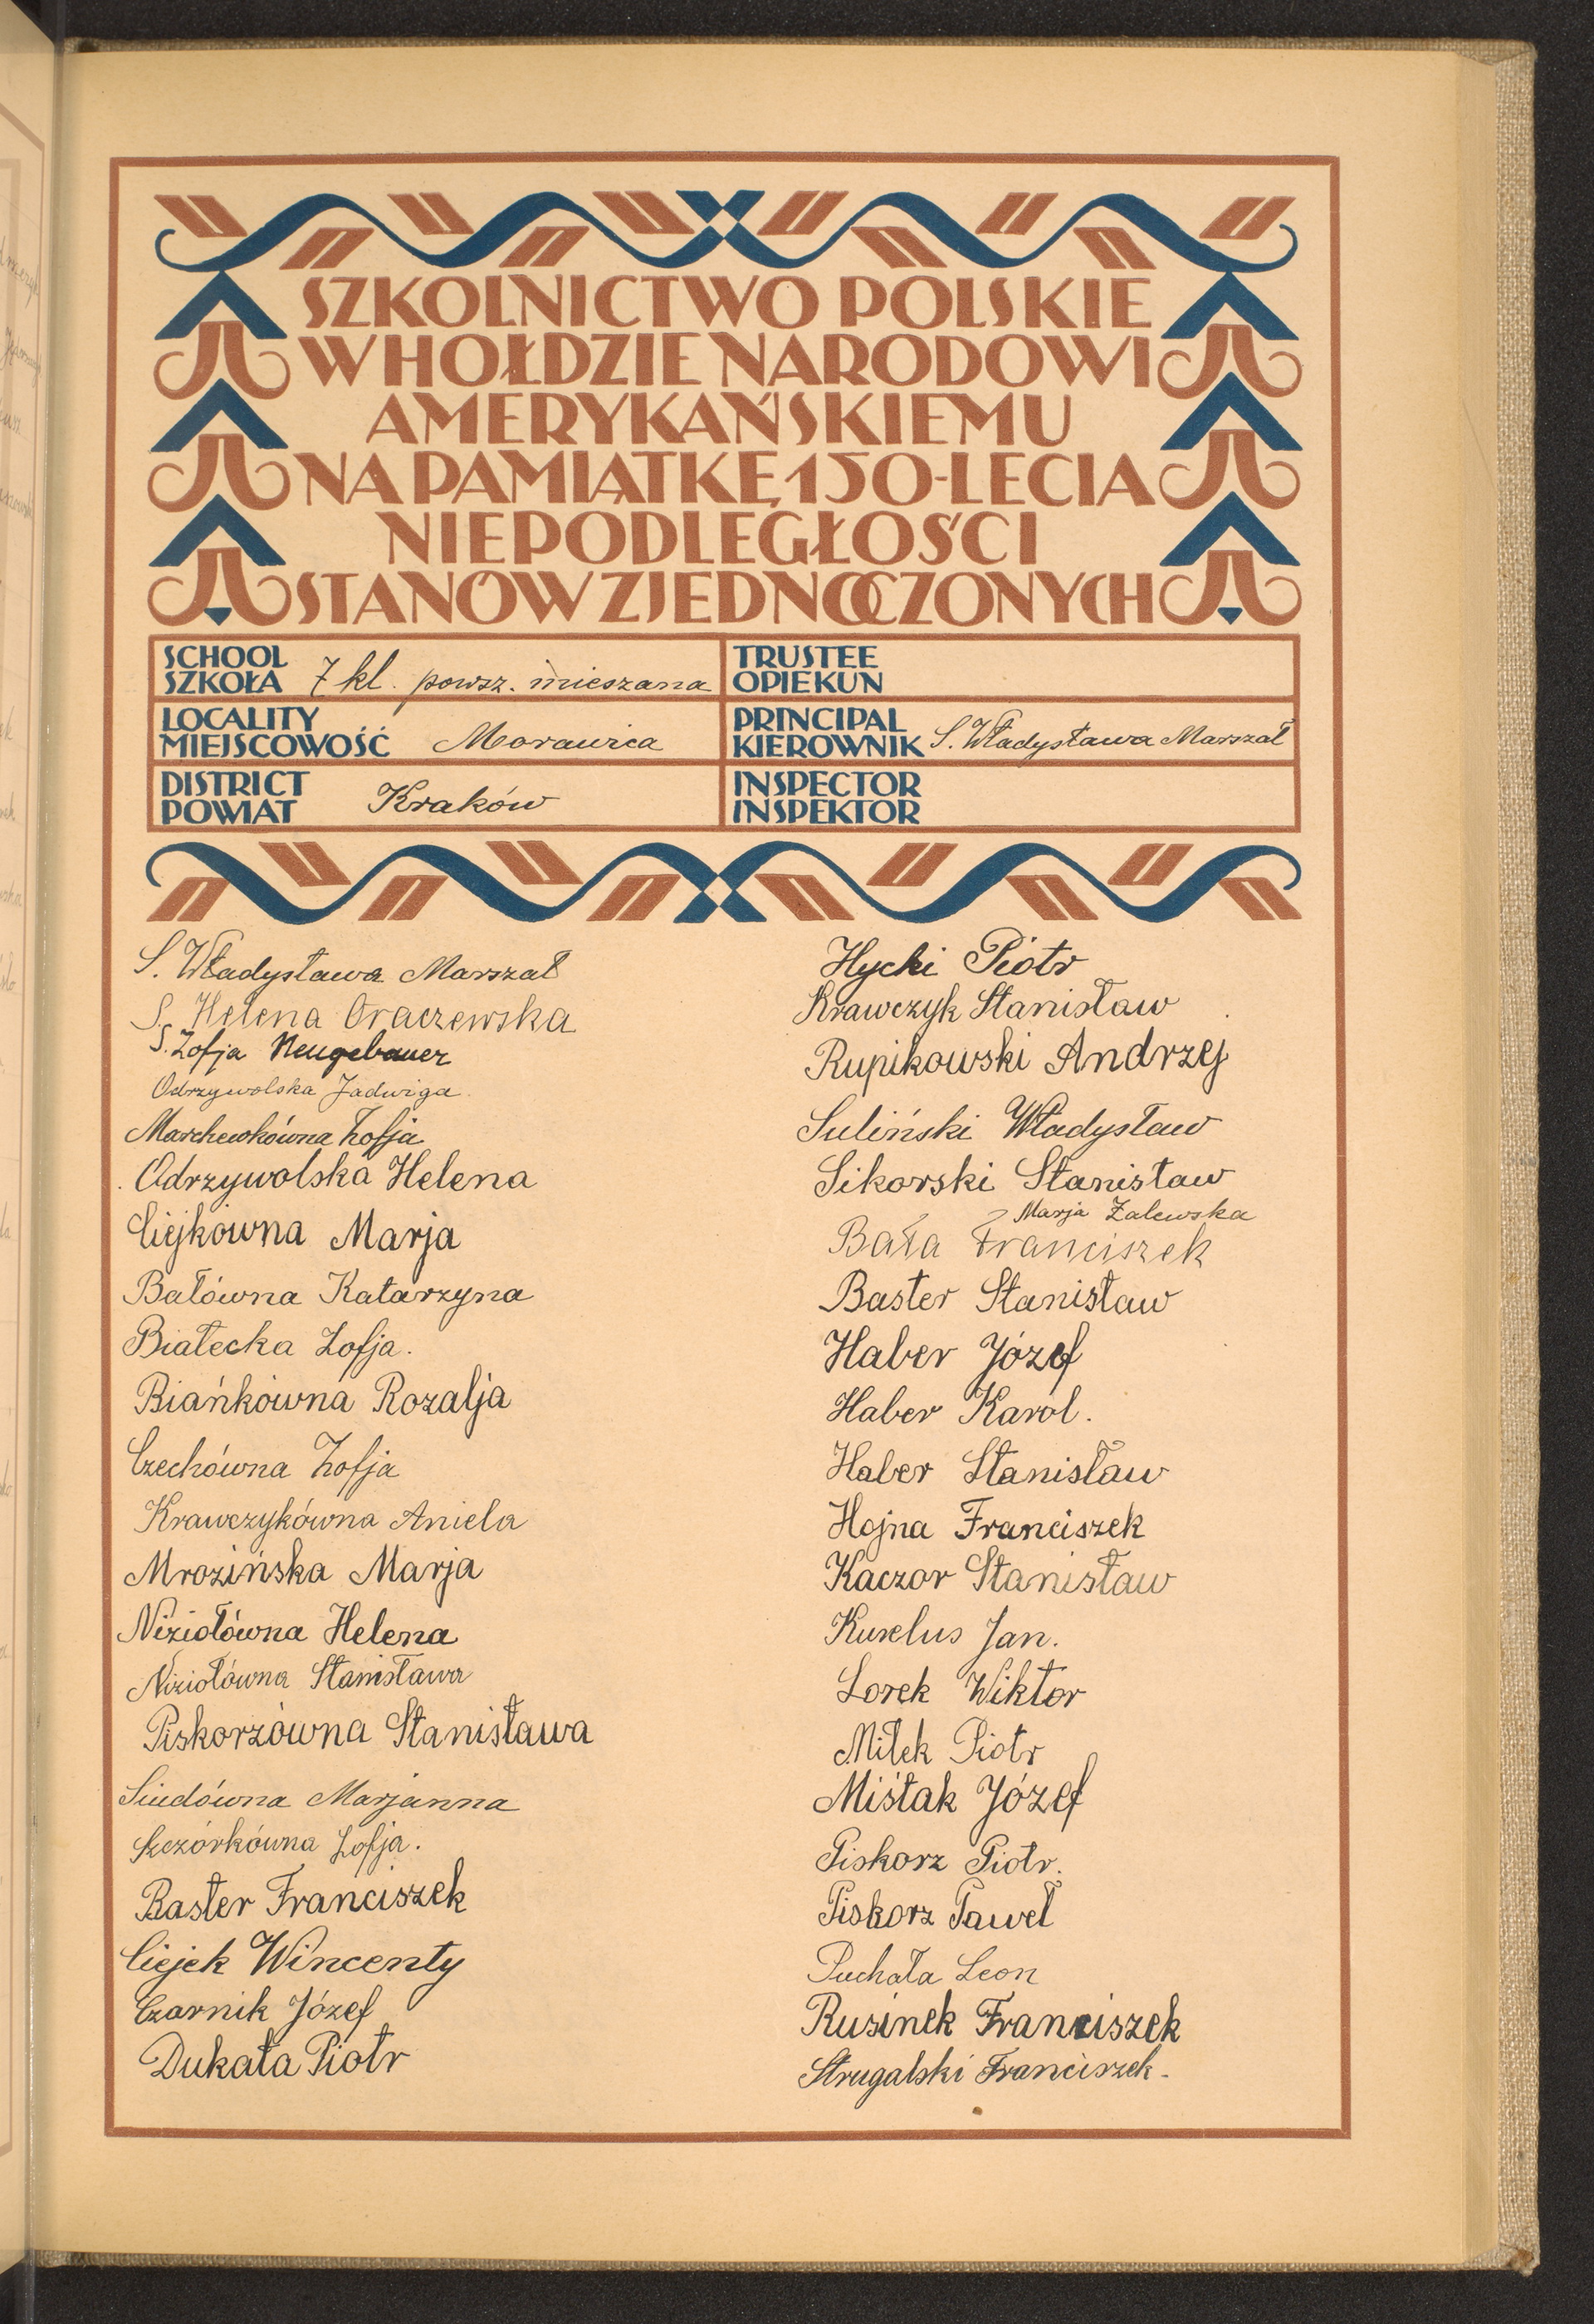 SZKOLNICTWO POLSKIE
W HOŁDZIE NARODOWI
AMERYKAŃSKIEMU
NA PAMIĄTKĘ 150-LECIA
NIEPODLEGŁOŚCI
STANÓW ZJEDNOCZONYCH
SCHOOL
SZKOŁA 7 kl. powsz. mieszana
TRUSTEE
OPIEKUN
LOCALITY
MIEJSCOWOŚĆ Morawica
PRINCIPAL
KIEROWNIK S. Władysława Marszał
DISTRICT
POWIAT Kraków
INSPECTOR
INSPEKTOR
S. Władysława Marszał
S. Helena Oraczewska
S. Zofja Neugebauer
Odrzywolska Jadwiga
Marchewkówna Zofja
Odrzywolska Helena
Ciejkówna Marja
Bałówna Katarzyna
Białecka Zofja.
Biańkówna Rozalja
Czechówna Zofja
Krawczykówna Aniela
Mrozińska Marja
Niziołówna Helena
Niziołówna Stanisława
Piskorzówna Stanisława
Siudówna Marjanna
Szczórkówna Zofja.
Baster Franciszek
Ciejek Wincenty
Czarnik Józef
Dukała Piotr
Hycki Piotr
Krawczyk Stanisław
Rupikowski Andrzej
Suliński Władysław
Sikorski Stanisław
Marja Zalewska
Bała Franciszek
Baster Stanisław
Haber Józef
Haber Karol.
Haber Stanisław
Hojna Franciszek
Kaczor Stanisław
Kurelus Jan.
Lorek Wiktor
Miłek Piotr
Miśtak Józef
Piskorz Piotr.
Piskorz Paweł
Puchała Leon
Rusinek Franciszek
Strugalski Franciszek.